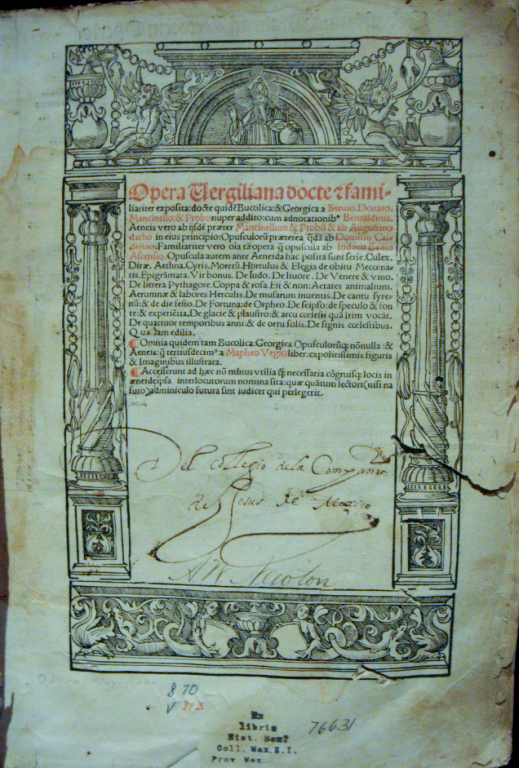 Opera Vergiliana docte & fami-
liariter exposita: docte quidē Bucolica: & Georgica a Seruio. Donato.
Mancinello: & Probo nuper addito: cum adnotationib⁹ Beroaldinis.
Aeneis vero ab iisdē præter Mancinellum & Probū & ab Augustino
datho in eius principio: Opusculorū præterea q̄dā ab Domitio Cal
derino. Familiariter vero oīa tā opera q̄ opuscula ab Iodoco Badio
Ascensio. Opuscula autem ante Aeneida hac posita sunt serie. Culex.
Diræ. Aethna. Cyris. Moretū. Hortulus & Elegia de obitu Mecœna
tis. Epigrāmata. Vir bonus. De ludo. De liuore. De Venere & vino.
De littera Pythagoræ. Copa & rosa. Est & non. Aetates animalium.
Aerumnæ & labores Herculis. De musarum inuentis. De cantu syre
nū: & de die festo. De Fortuna. de Orpheo. De seipso: de speculo & fon
te: & experiētia. De glacie & plaustro: & arcu cœlesti quā Irim vocāt.
De quattuor temporibus anni: & de ortu solis. De signis cœlestibus.
¶ Omnia quidem tam Bucolica: Georgica Opusculorūq; nōnulla: &
Aeneis: q̄ tertiusdecim⁹ a: Mapheo Vegio liber: expolitissimis figuris
& Imaginibus illustrata.
¶ Accesserunt ad hæc nō minus vtilia q̄ necessaria cōgruisq; locis in
æneide ipsa interlocutorum nomina sita: quæ quātum lectori (nisi na
suto) adminiculo futura sint iudicet qui perlegerit.
Del collegio de la Compañia
de Jesus de Mexico
870
V
Ex
libris
Hist. Nomi
Coll. Max. S.I.
Prov Mex.
76631